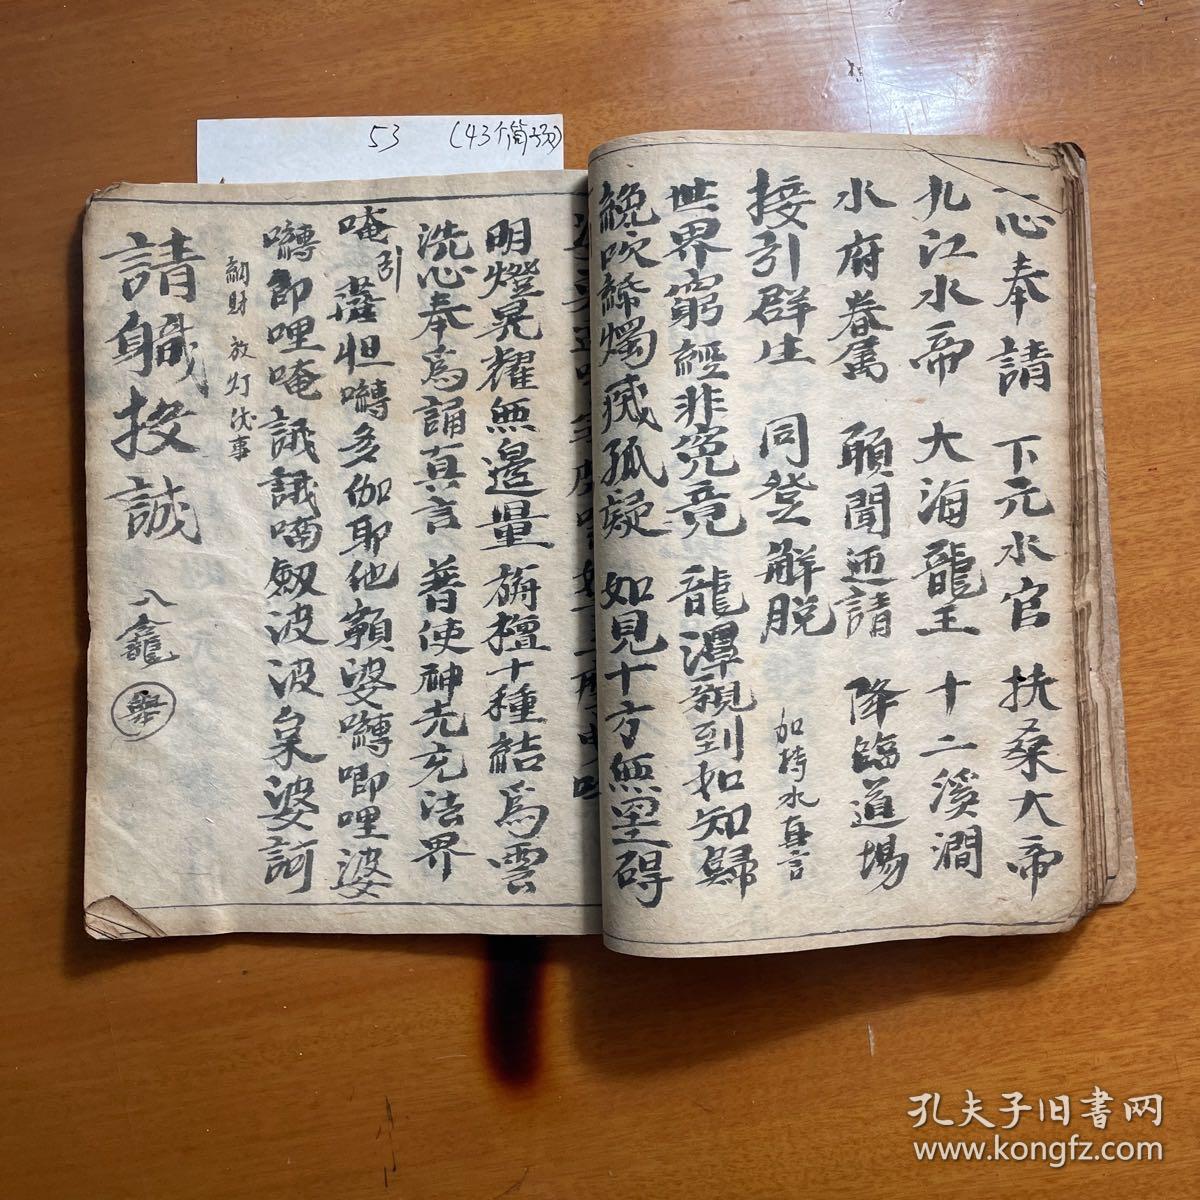 53 (43个筒子页)
心奉請 下元水官 扶桑大帝
九江水帝 大海龍王 十二溪澗
水府眷属 願聞迎請 降臨道場
接引群生 同登解脱 加持水真言
世界窮經非究竟 龍潭親到如知歸
繞吹 燭 孤疑 如見十方無罣碍
明燈晃耀無邊量 旃檀十種結爲雲
洗心奉爲誦真言 普使神光充法界
唵引 薩怛嚩多伽耶他 婆嚩唧哩婆
嚩即哩唵 誐誐喃 波波 婆訶
財 放灯 事
請職投誠 入龕
孔夫子旧書网
www.kongfz.com